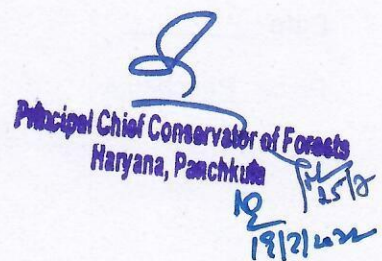 Principal Chief Conservator of Forests
Haryana, Panchkula
25/2
19/2/2022